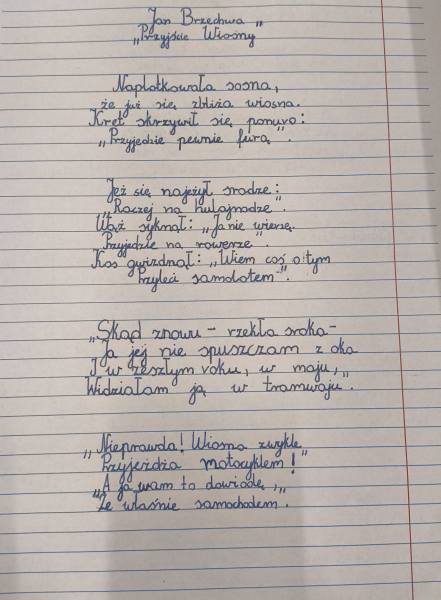 Jan Brzechwa „
„Przyjście Wiosny
Naplotkowała sosna,
że już się zbliża wiosna.
Kret skrzywił się ponuro:
„Przyjedzie pewnie furą”.
Jeż się najeżył srodze:
„Raczej na hulajnodze”.
Wąż syknął: „Ja nie wierzę.
Przyjedzie na rowerze”.
Kos gwizdnął: „Wiem coś o tym
Przyleci samolotem”.
„Skąd znowu – rzekła sroka –
Ja jej nie spuszczam z oka
I w zeszłym roku, w maju, „
Widziałam ją w tramwaju.
„Nieprawda! Wiosna zwykle”
Przyjeżdża motocyklem!
„A ja wam to dowiodę, „
Że właśnie samochodem.